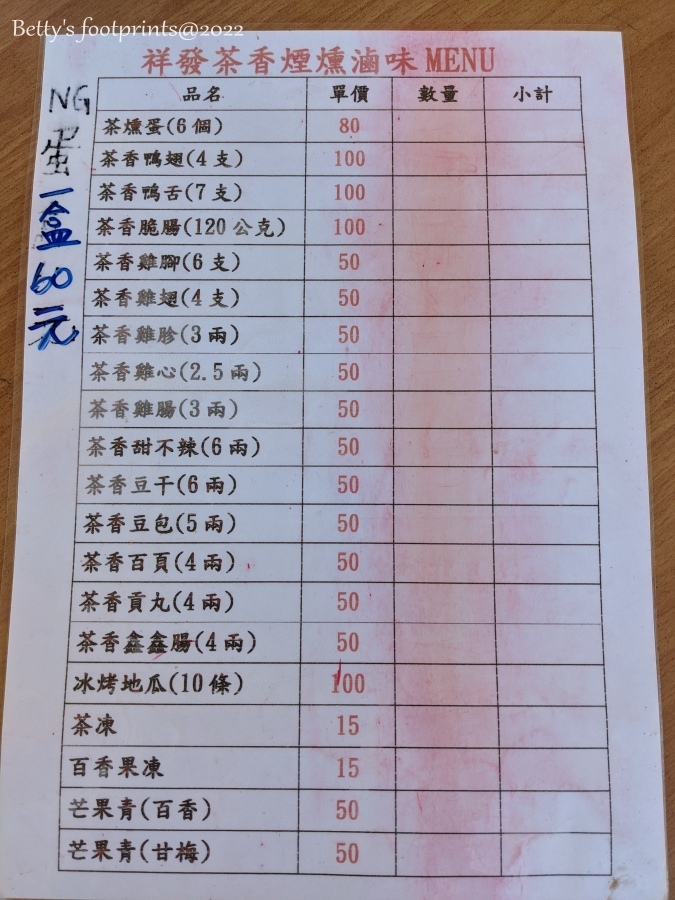 Betty's footprints@2022
祥發茶香煙燻滷味 MENU
品名 單價 數量 小計
茶燻蛋(6個) 80
茶香鴨翅(4支) 100
茶香鴨舌(7支) 100
茶香脆腸(120公克) 100
茶香雞腳(6支) 50
茶香雞翅(4支) 50
茶香雞胗(3兩) 50
茶香雞心(2.5兩) 50
茶香雞腸(3兩) 50
茶香甜不辣(6兩) 50
茶香豆干(6兩) 50
茶香豆包(5兩) 50
茶香百頁(4兩) 50
茶香貢丸(4兩) 50
茶香鑫鑫腸(4兩) 50
冰烤地瓜(10條) 100
茶凍 15
百香果凍 15
芒果青(百香) 50
芒果青(甘梅) 50
NG蛋一盒60元